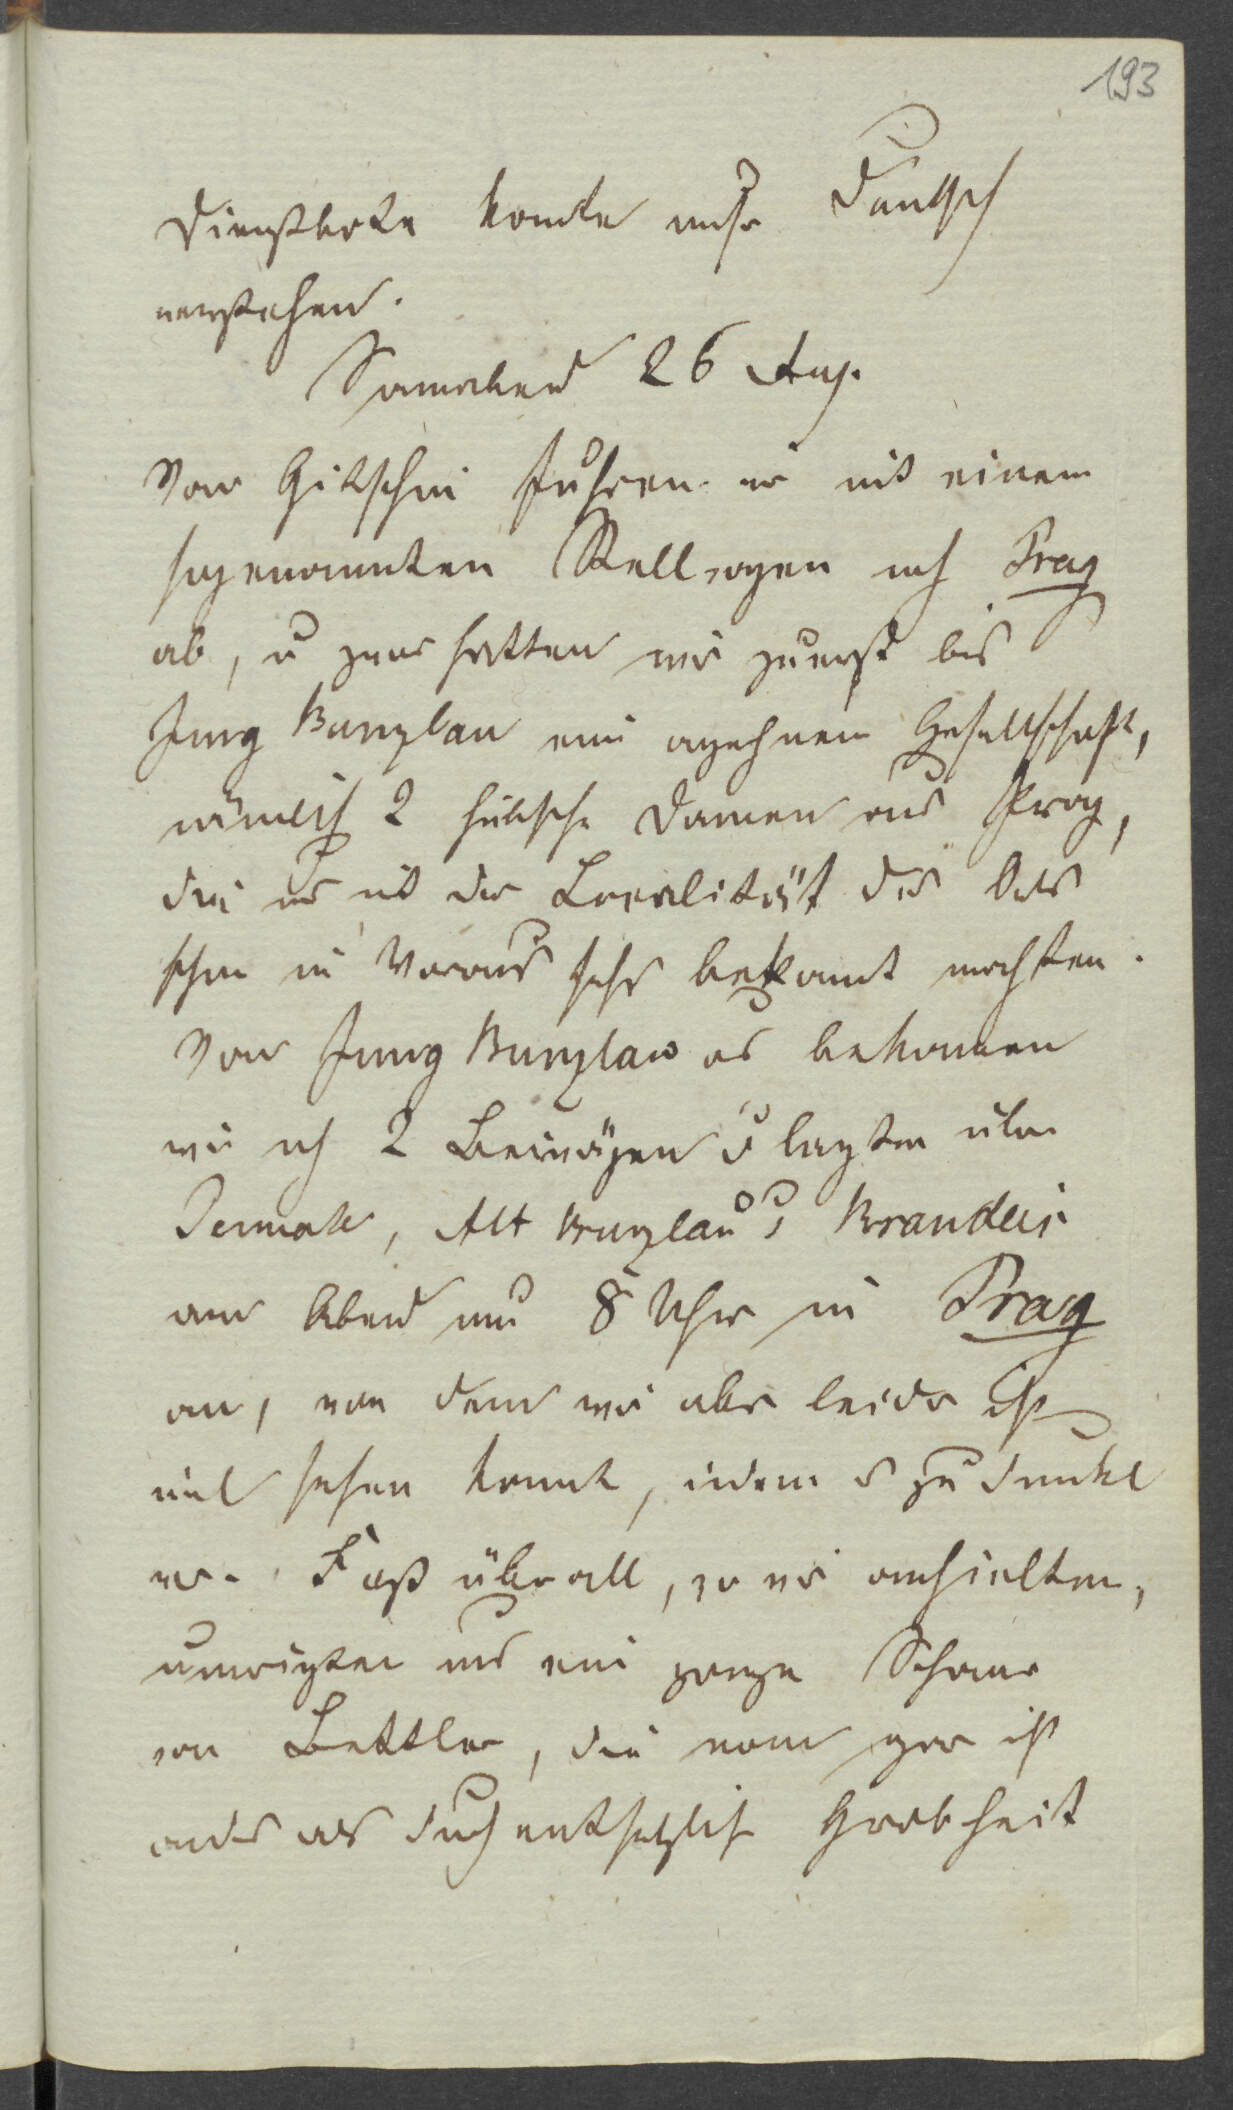 193
Dienstbote konnte mehr Deutsch
verstehen.
Sonnabend 26 Aug.
Von Gitschin fuhren wir mit einem
sogenannten Stellwagen nach Prag
ab, u zwar hatten wir zuerst bis
Jung Bunzlau eine angenehme Gesellschaft,
nämlich 2 hübsche Damen aus Prag,
die uns mit der Localität des Ortes
schon im Voraus sehr bekannt machten.
Von Jung Bunzlau aus bekamen
wir noch 2 Beiwägen u langten über
Benatek, Alt Bunzlau u Brandeis
am Abend um 8 Uhr in Prag
an, von dem wir aber leider nicht
viel sehen konnten, indem es zu dunkel
war. Fast überall, wo wir anhielten,
umringten uns eine ganze Schaar
von Bettler, die man gar nicht
anders als durch entsetzliche Grobheit